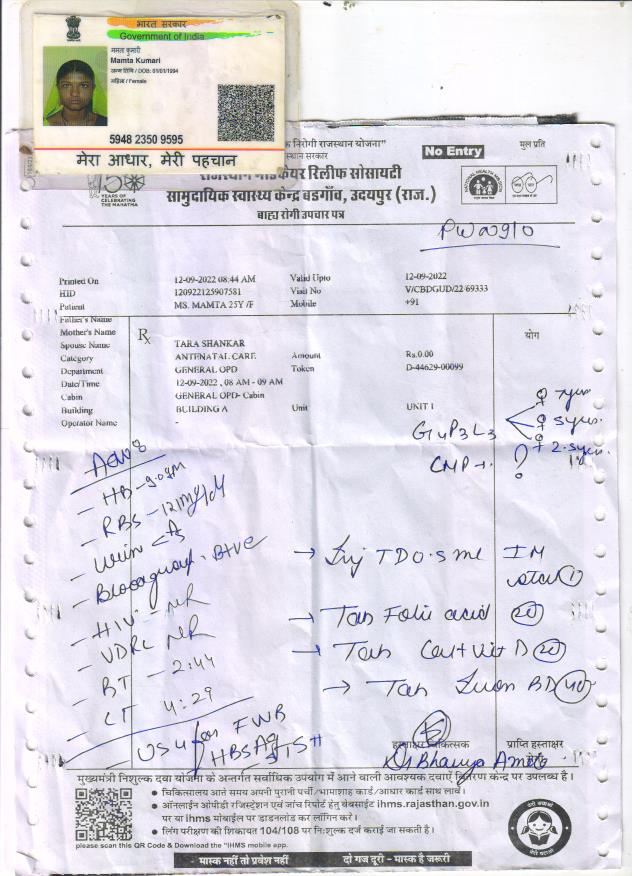 भारत सरकार
Government of India
ममता कुमारी
Mamta Kumari
जन्म तिथि / DOB: 01/01/1994
महिला / Female
5948 2350 9595
मेरा आधार, मेरी पहचान
निरोगी राजस्थान योजना"
No Entry
मुल प्रति
राजस्थान सरकार
राजस्थान मेडिकेयर रिलीफ सोसायटी
150 YEARS OF CELEBRATING THE MAHATMA
सामुदायिक स्वास्थ्य केन्द्र बडगाँव, उदयपुर (राज.)
बाह्य रोगी उपचार पत्र
Printed On 12-09-2022 08:44 AM Valid Upto 12-09-2022
HID 120922125907581 Visit No V/CBDGUD/22/69333
Patient MS. MAMTA 25Y /F Mobile +91
Father's Name
Mother's Name
Rx
योग
Spouse Name TARA SHANKAR
Category ANTENATAL CARE Amount Rs.0.00
Department GENERAL OPD Token D-44629-00099
Date/Time 12-09-2022 , 08 AM - 09 AM
Cabin GENERAL OPD- Cabin
Building BUILDING A Unit UNIT 1
Operator Name -
G4P3L3
Adv
- HB - 9.0 gm
- RBS - 121 mg/dl
- Blood group - B+ve
- HIV - NR
- VDRL NR
- BT - 2:44
- CT 4:29
- USG for FWB
HBsAg
→ Inj TD 0.5 ml IM
stat ①
→ Tab Folic acid
→ Tab Cal + Vit D
→ Tab Iron BD
हस्ताक्षर चिकित्सक
प्राप्ति हस्ताक्षर
मुख्यमंत्री निशुल्क दवा योजना के अन्तर्गत सर्वाधिक उपयोग में आने वाली आवश्यक दवाऐं वितरण केन्द्र पर उपलब्ध है।
• चिकित्सालय आते समय अपनी पुरानी पर्ची/भामाशाह कार्ड/आधार कार्ड साथ लावें।
• ऑनलाईन ओपीडी रजिस्ट्रेशन एवं जांच रिपोर्ट हेतु वेबसाईट ihms.rajasthan.gov.in
पर या ihms मोबाईल पर डाउनलोड कर लॉगिन करे।
• लिंग परीक्षण की शिकायत 104/108 पर नि:शुल्क दर्ज कराई जा सकती है।
please scan this QR Code & Download the "IHMS mobile app.
- मास्क नहीं तो प्रवेश नहीं
दो गज दूरी - मास्क है जरूरी